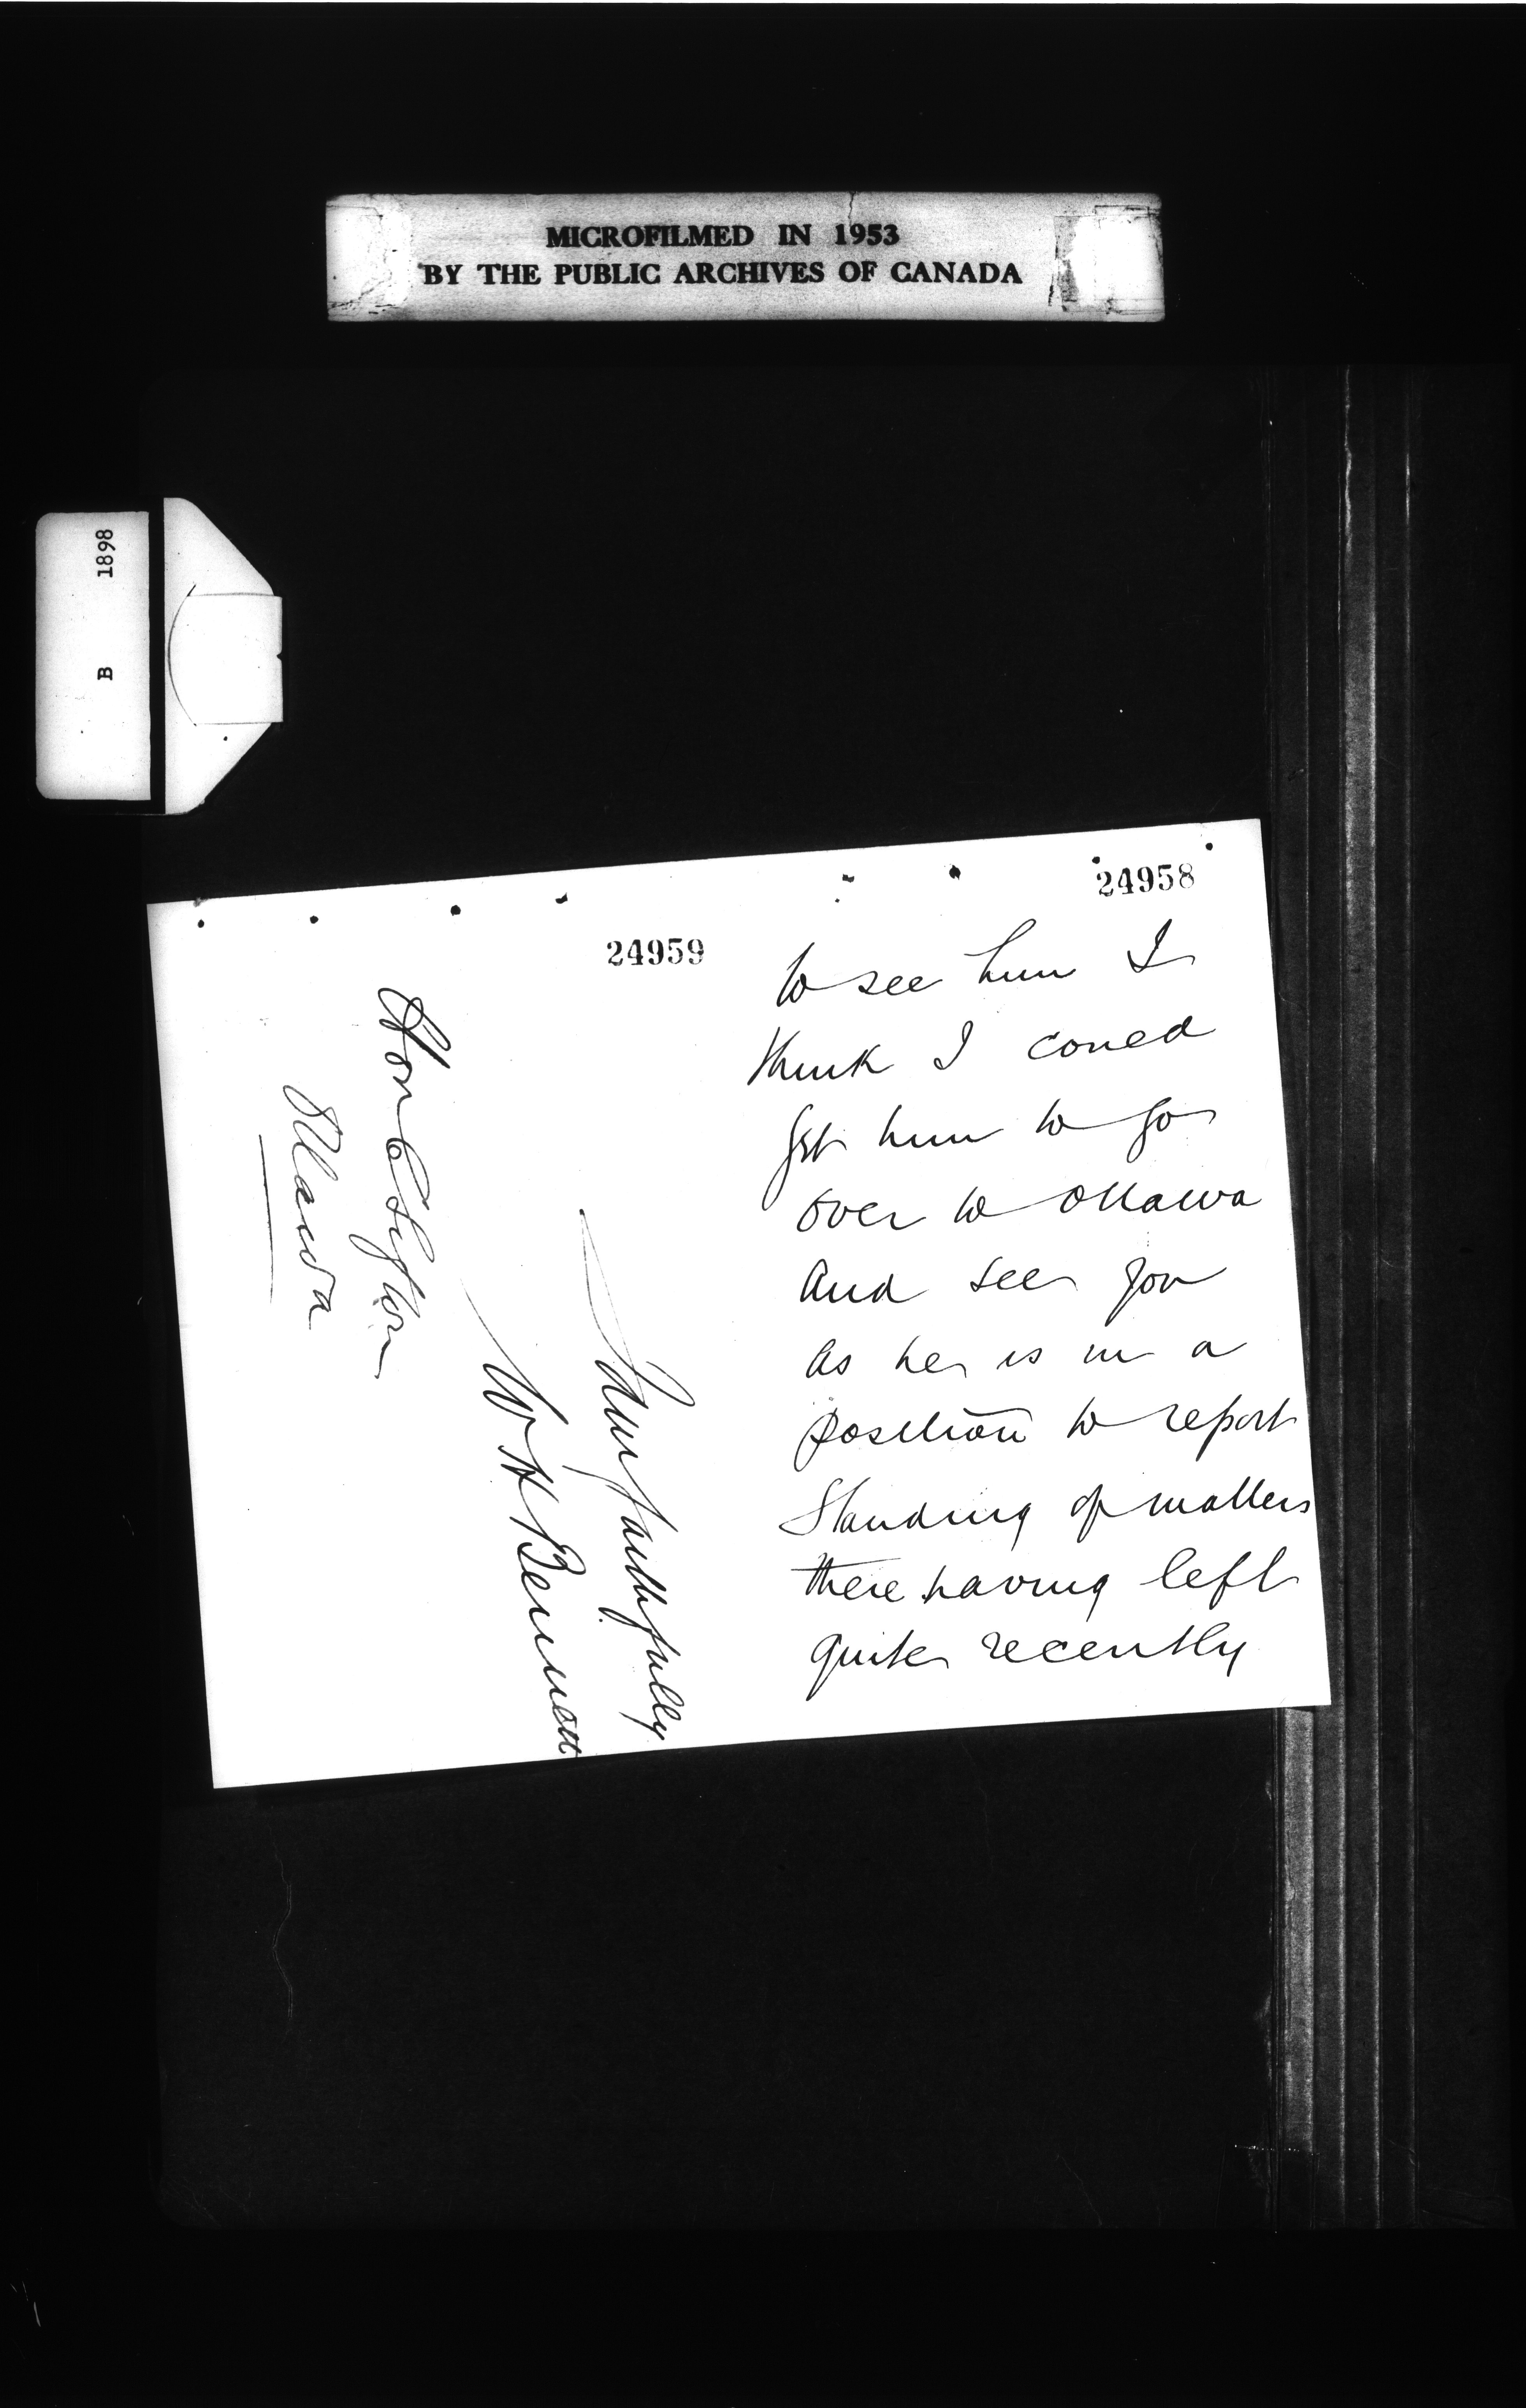 MICROFILMED IN 1953
BY THE PUBLIC ARCHIVES OF CANADA
B 1898
24958
to see him I
think I could
get him to go
over to Ottawa
and see you
as he is in a
position to report
standing of matters
there having left
quite recently
24959
Yours faithfully
W H Bennett
Hon C Sifton
Ottawa